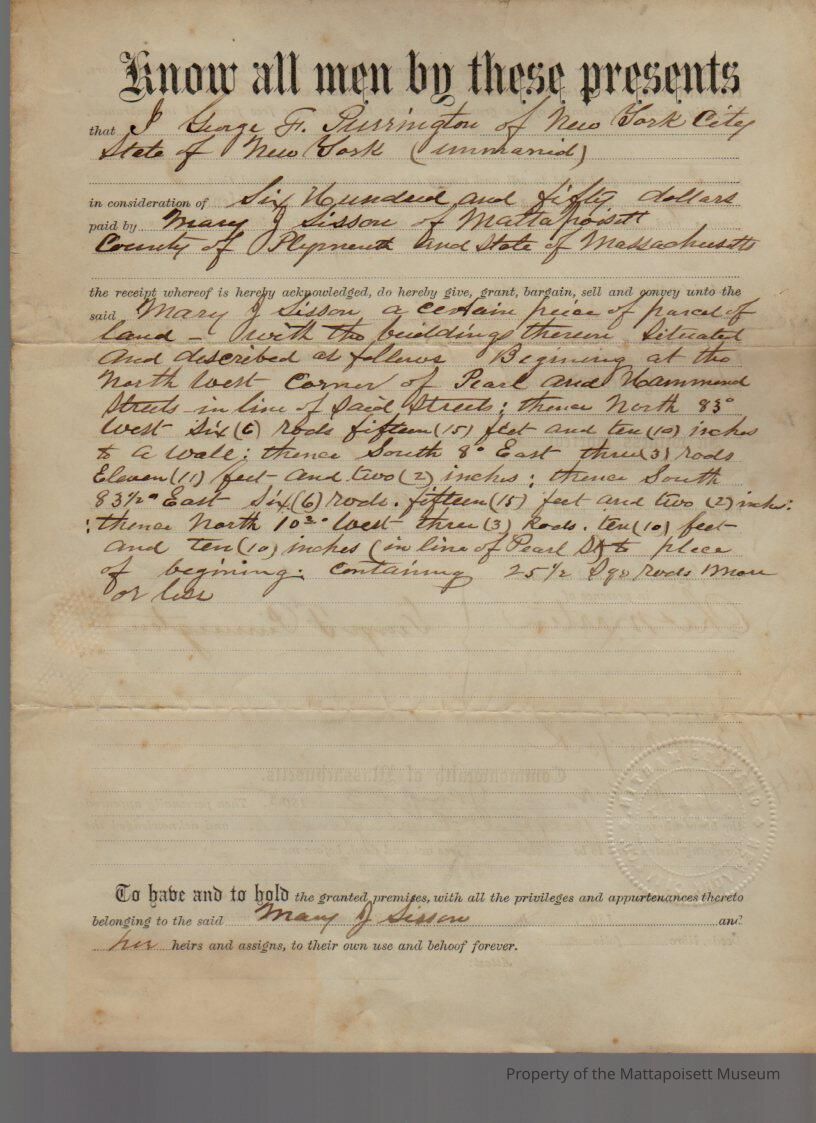 Know all men by these presents
that I George F. Purrington of New York City
State of New York (unmarried)
in consideration of Six Hundred and fifty dollars
paid by Mary J Sisson of Mattapoisett
County of Plymouth and State of Massachusetts
the receipt whereof is hereby acknowledged, do hereby give, grant, bargain, sell and convey unto the
said Mary J Sisson a certain piece of parcel of
land – with the buildings thereon Situated
and discribed as follows Begining at the
North West Corner of Pearl and Hammond
Streets in line of Said Streets; thence North 83°
West Six (6) rods fifteen (15) feet and ten (10) inches
to a Wall; thence South 8° East three (3) rods
Eleven (11) feet and two (2) inches; thence South
83½° East Six (6) rods. fifteen (15) feet and two (2) inch:
: thence North 10 West three (3) Rods. ten (10) feet
and ten (10) inches (in line of Pearl St to place
of begining: containing 25½ Sqr rods More
or less
Commonwealth of Massachusetts.
To have and to hold the granted premises, with all the privileges and appurtenances thereto
belonging to the said Mary J Sisson and
her heirs and assigns, to their own use and behoof forever.
Property of the Mattapoisett Museum